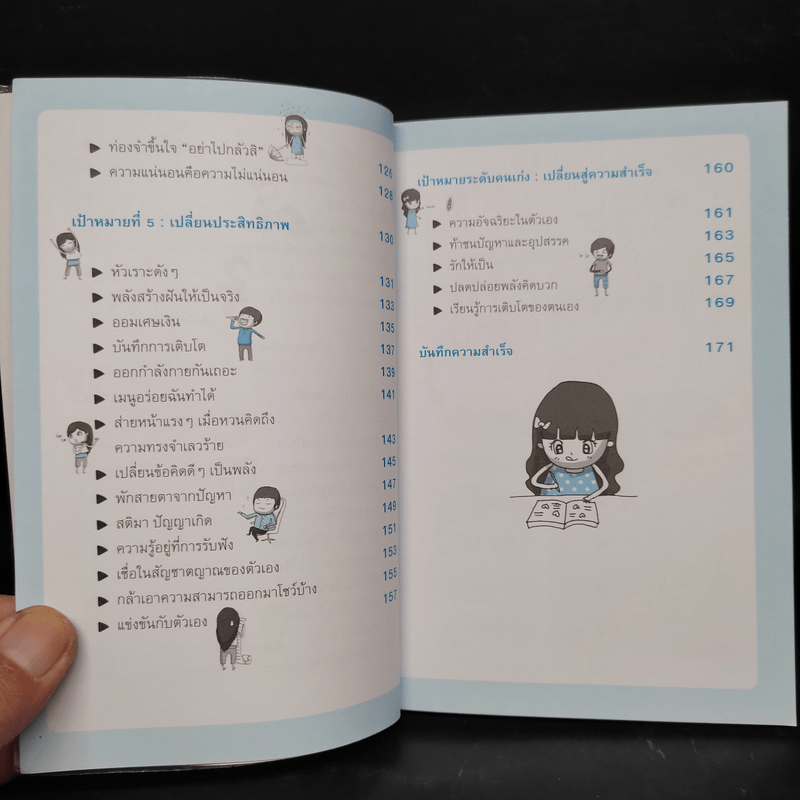 ท่องจำขึ้นใจ “อย่าไปกลัวสิ” 126
ความแน่นอนคือความไม่แน่นอน 128
เป้าหมายที่ 5 : เปลี่ยนประสิทธิภาพ 130
หัวเราะดังๆ 131
พลังสร้างฝันให้เป็นจริง 133
ออมเศษเงิน 135
บันทึกการเติบโต 137
ออกกำลังกายกันเถอะ 139
เมนูอร่อยฉันทำได้ 141
ส่ายหน้าแรงๆ เมื่อหวนคิดถึง
ความทรงจำเลวร้าย 143
เปลี่ยนข้อคิดดีๆ เป็นพลัง 145
พักสายตาจากปัญหา 147
สติมา ปัญญาเกิด 149
ความรู้อยู่ที่การรับฟัง 151
เชื่อในสัญชาตญาณของตัวเอง 153
กล้าเอาความสามารถออกมาโชว์บ้าง 155
แข่งขันกับตัวเอง 157
เป้าหมายระดับคนเก่ง : เปลี่ยนสู่ความสำเร็จ 160
ความอัจฉริยะในตัวเอง 161
ท้าชนปัญหาและอุปสรรค 163
รักให้เป็น 165
ปลดปล่อยพลังคิดบวก 167
เรียนรู้การเติบโตของตนเอง 169
บันทึกความสำเร็จ 171